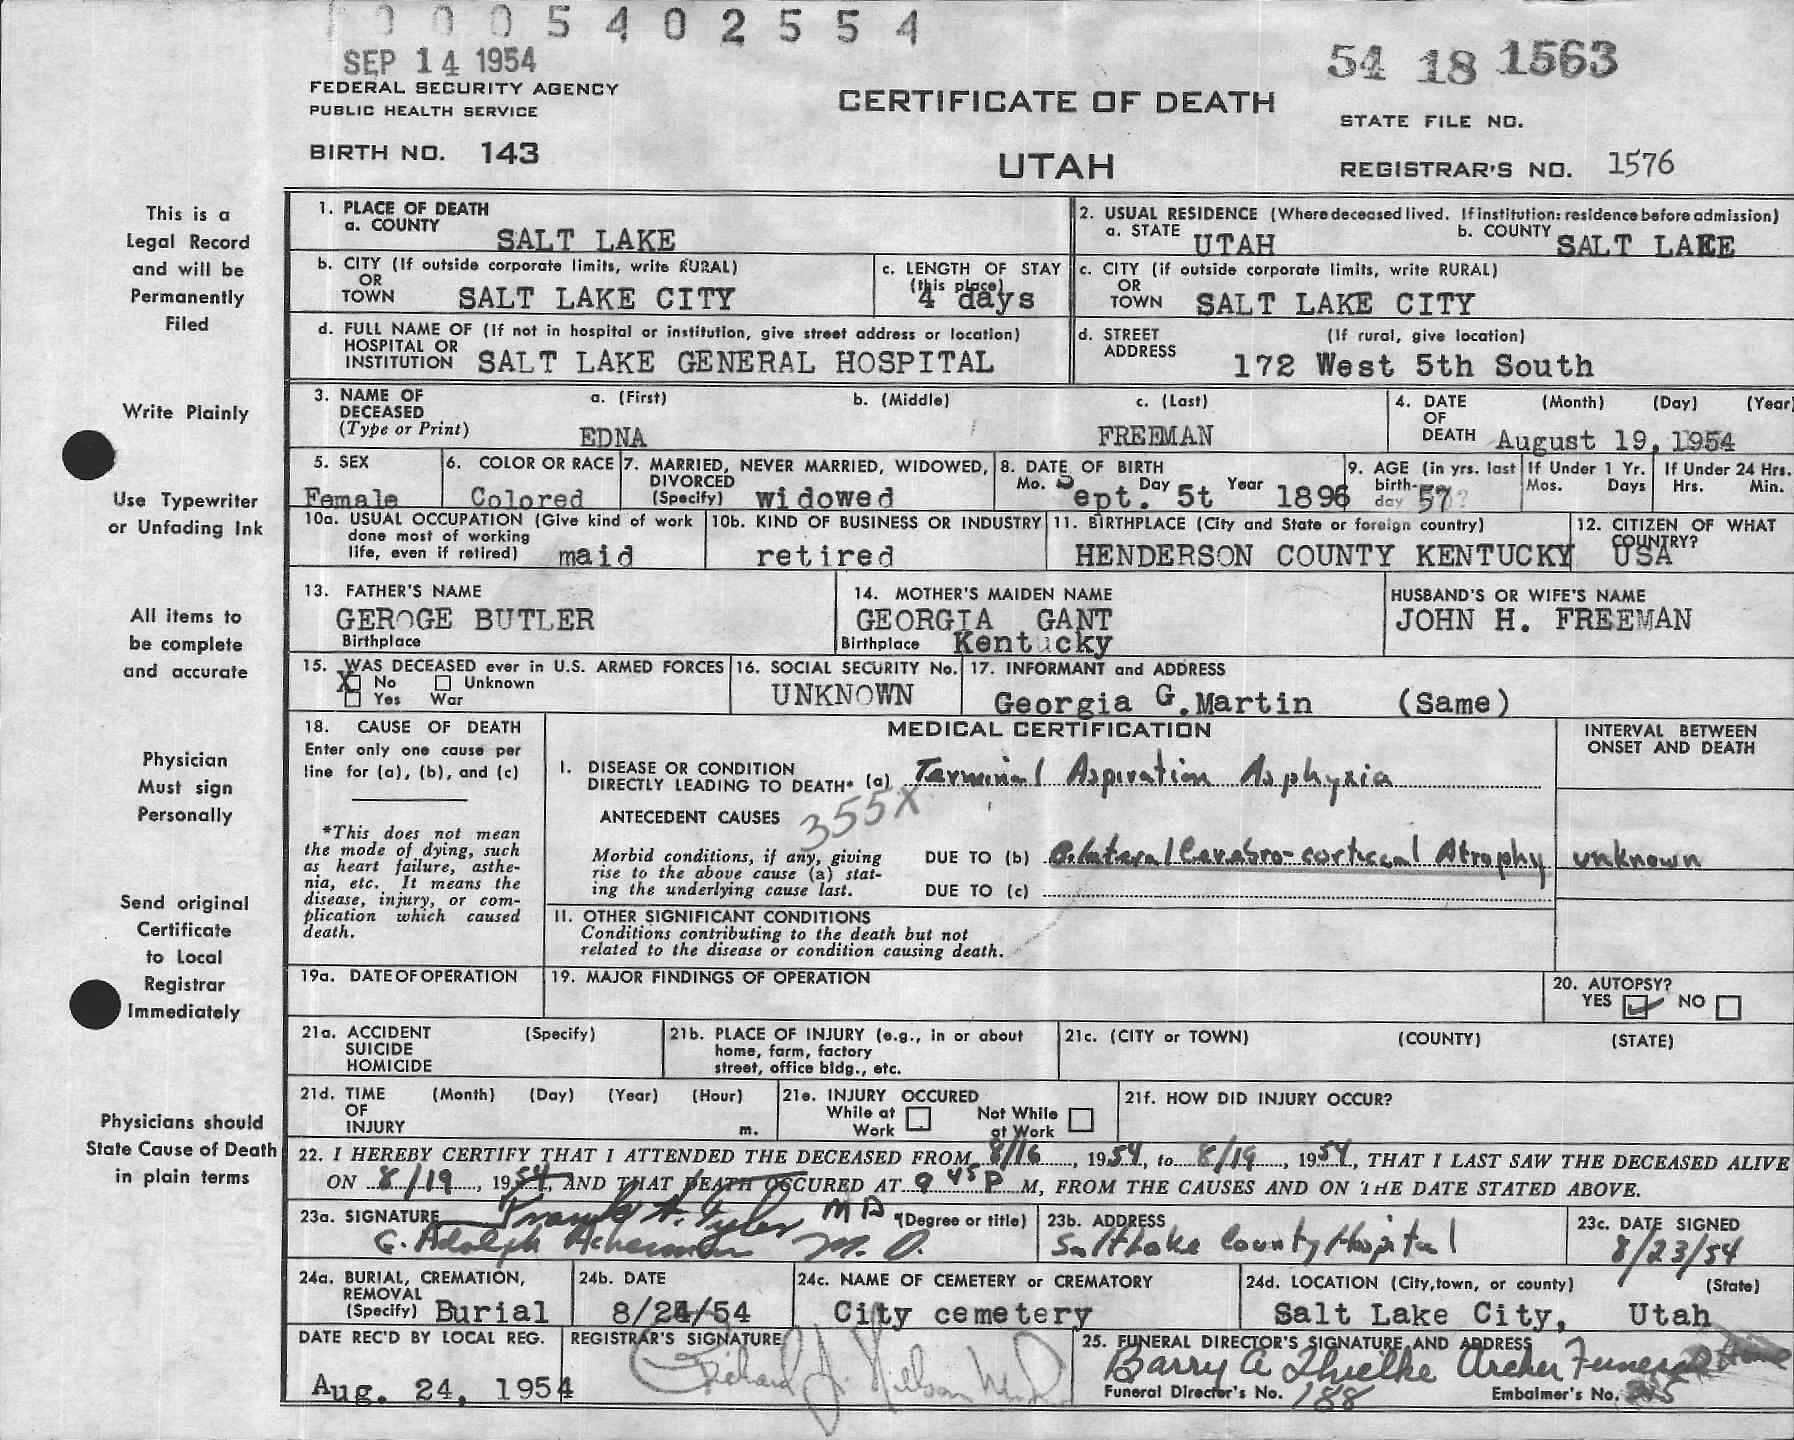 0005402554
SEP 14 1954
54 18 1563
FEDERAL SECURITY AGENCY
PUBLIC HEALTH SERVICE
CERTIFICATE OF DEATH
STATE FILE NO.
BIRTH NO. 143
UTAH
REGISTRAR'S NO. 1576
This is a
Legal Record
and will be
Permanently
Filed
Write Plainly
Use Typewriter
or Unfading Ink
All items to
be complete
and accurate
Physician
Must sign
Personally
Send original
Certificate
to Local
Registrar
Immediately
Physicians should
State Cause of Death
in plain terms
1. PLACE OF DEATH
a. COUNTY SALT LAKE
2. USUAL RESIDENCE (Where deceased lived. If institution: residence before admission)
a. STATE UTAH b. COUNTY SALT LAKE
b. CITY (If outside corporate limits, write RURAL)
OR
TOWN SALT LAKE CITY
c. LENGTH OF STAY
(this place)
4 days
c. CITY (if outside corporate limits, write RURAL)
OR
TOWN SALT LAKE CITY
d. FULL NAME OF (If not in hospital or institution, give street address or location)
HOSPITAL OR
INSTITUTION SALT LAKE GENERAL HOSPITAL
d. STREET (If rural, give location)
ADDRESS 172 West 5th South
3. NAME OF
DECEASED
(Type or Print)
a. (First) b. (Middle) c. (Last)
EDNA FREEMAN
4. DATE (Month) (Day) (Year)
OF
DEATH August 19, 1954
5. SEX
Female
6. COLOR OR RACE
Colored
7. MARRIED, NEVER MARRIED, WIDOWED,
DIVORCED
(Specify) widowed
8. DATE OF BIRTH
Mo. Day Year
Sept. 5t 1896
9. AGE (in yrs. last
birth-
day 57?
If Under 1 Yr.
Mos. Days
If Under 24 Hrs.
Hrs. Min.
10a. USUAL OCCUPATION (Give kind of work
done most of working
life, even if retired) maid
10b. KIND OF BUSINESS OR INDUSTRY
retired
11. BIRTHPLACE (City and State or foreign country)
HENDERSON COUNTY KENTUCKY
12. CITIZEN OF WHAT
COUNTRY?
USA
13. FATHER'S NAME
GEROGE BUTLER
Birthplace
14. MOTHER'S MAIDEN NAME
GEORGIA GANT
Birthplace Kentucky
HUSBAND'S OR WIFE'S NAME
JOHN H. FREEMAN
15. WAS DECEASED ever in U.S. ARMED FORCES
X No Unknown
Yes War
16. SOCIAL SECURITY No.
UNKNOWN
17. INFORMANT and ADDRESS
Georgia G.Martin (Same)
18. CAUSE OF DEATH
Enter only one cause per
line for (a), (b), and (c)
*This does not mean
the mode of dying, such
as heart failure, asthe-
nia, etc. It means the
disease, injury, or com-
plication which caused
death.
MEDICAL CERTIFICATION
INTERVAL BETWEEN
ONSET AND DEATH
I. DISEASE OR CONDITION
DIRECTLY LEADING TO DEATH* (a) Terminal Aspiration Asphyxia
ANTECEDENT CAUSES 355X
Morbid conditions, if any, giving
rise to the above cause (a) stat-
ing the underlying cause last.
DUE TO (b) Bilateral Cerebro-cortical Atrophy unknown
DUE TO (c)
II. OTHER SIGNIFICANT CONDITIONS
Conditions contributing to the death but not
related to the disease or condition causing death.
19a. DATE OF OPERATION
19. MAJOR FINDINGS OF OPERATION
20. AUTOPSY?
YES ✓ NO
21a. ACCIDENT (Specify)
SUICIDE
HOMICIDE
21b. PLACE OF INJURY (e.g., in or about
home, farm, factory
street, office bldg., etc.
21c. (CITY or TOWN) (COUNTY) (STATE)
21d. TIME (Month) (Day) (Year) (Hour)
OF
INJURY m.
21e. INJURY OCCURED
While at Not While
Work at Work
21f. HOW DID INJURY OCCUR?
22. I HEREBY CERTIFY THAT I ATTENDED THE DECEASED FROM 8/16, 1954, to 8/19, 1954, THAT I LAST SAW THE DECEASED ALIVE
ON 8/19, 1954, AND THAT DEATH OCCURED AT 9 45 P M, FROM THE CAUSES AND ON THE DATE STATED ABOVE.
23a. SIGNATURE Frank H. Tyler MD (Degree or title)
G. Adolph Ackerman M.D.
23b. ADDRESS
Salt Lake County Hospital
23c. DATE SIGNED
8/23/54
24a. BURIAL, CREMATION,
REMOVAL
(Specify) Burial
24b. DATE
8/24/54
24c. NAME OF CEMETERY or CREMATORY
City cemetery
24d. LOCATION (City, town, or county) (State)
Salt Lake City, Utah
DATE REC'D BY LOCAL REG.
Aug. 24, 1954
REGISTRAR'S SIGNATURE
Richard J. Nielson
25. FUNERAL DIRECTOR'S SIGNATURE AND ADDRESS
Barry A Thielke Archer Funeral Home
Funeral Director's No. 188 Embalmer's No.